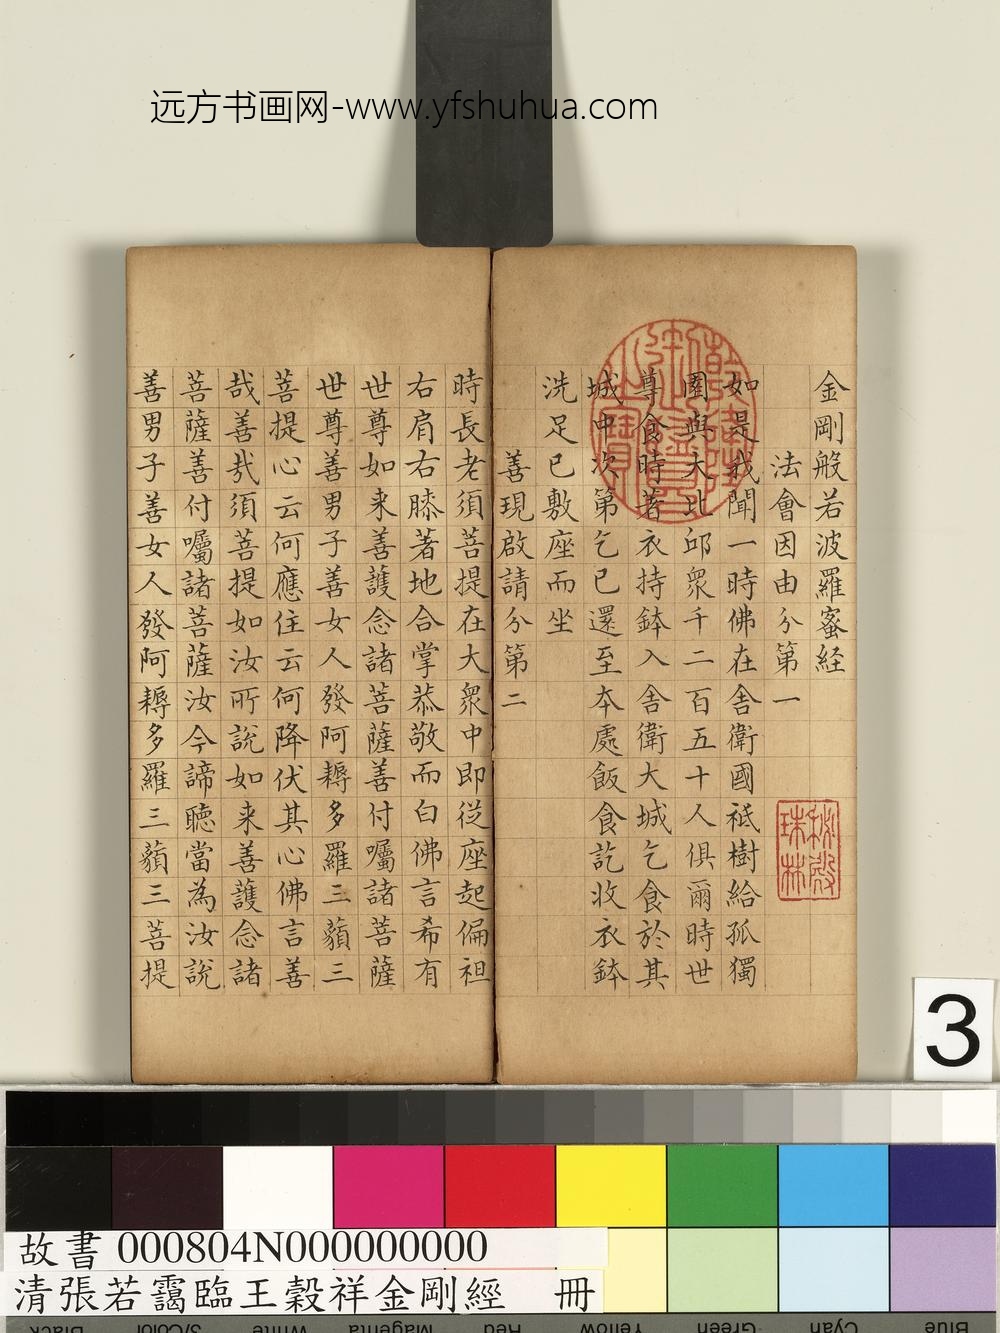 远方书画网-www.yfshuhua.com
金剛般若波羅蜜経
法會因由分第一
如是我聞一時佛在舍衛國祇樹給孤獨
園與大比邱衆千二百五十人俱爾時世
尊食時著衣持鉢入舍衛大城乞食於其
城中次第乞已還至本處飯食訖收衣鉢
洗足已敷座而坐
善現啟請分第二
時長老須菩提在大衆中即從座起偏袒
右肩右膝著地合掌恭敬而白佛言希有
世尊如来善護念諸菩薩善付囑諸菩薩
世尊善男子善女人發阿耨多羅三藐三
菩提心云何應住云何降伏其心佛言善
哉善哉須菩提如汝所說如来善護念諸
菩薩善付囑諸菩薩汝今諦聽當為汝說
善男子善女人發阿耨多羅三藐三菩提
乾隆御覽之寶
秘殿
珠林
3
故書 000804N000000000
清張若靄臨王穀祥金剛經 冊
Blue
Cyan
Green
Yellow
Red
Magenta
White
3/Color
Black